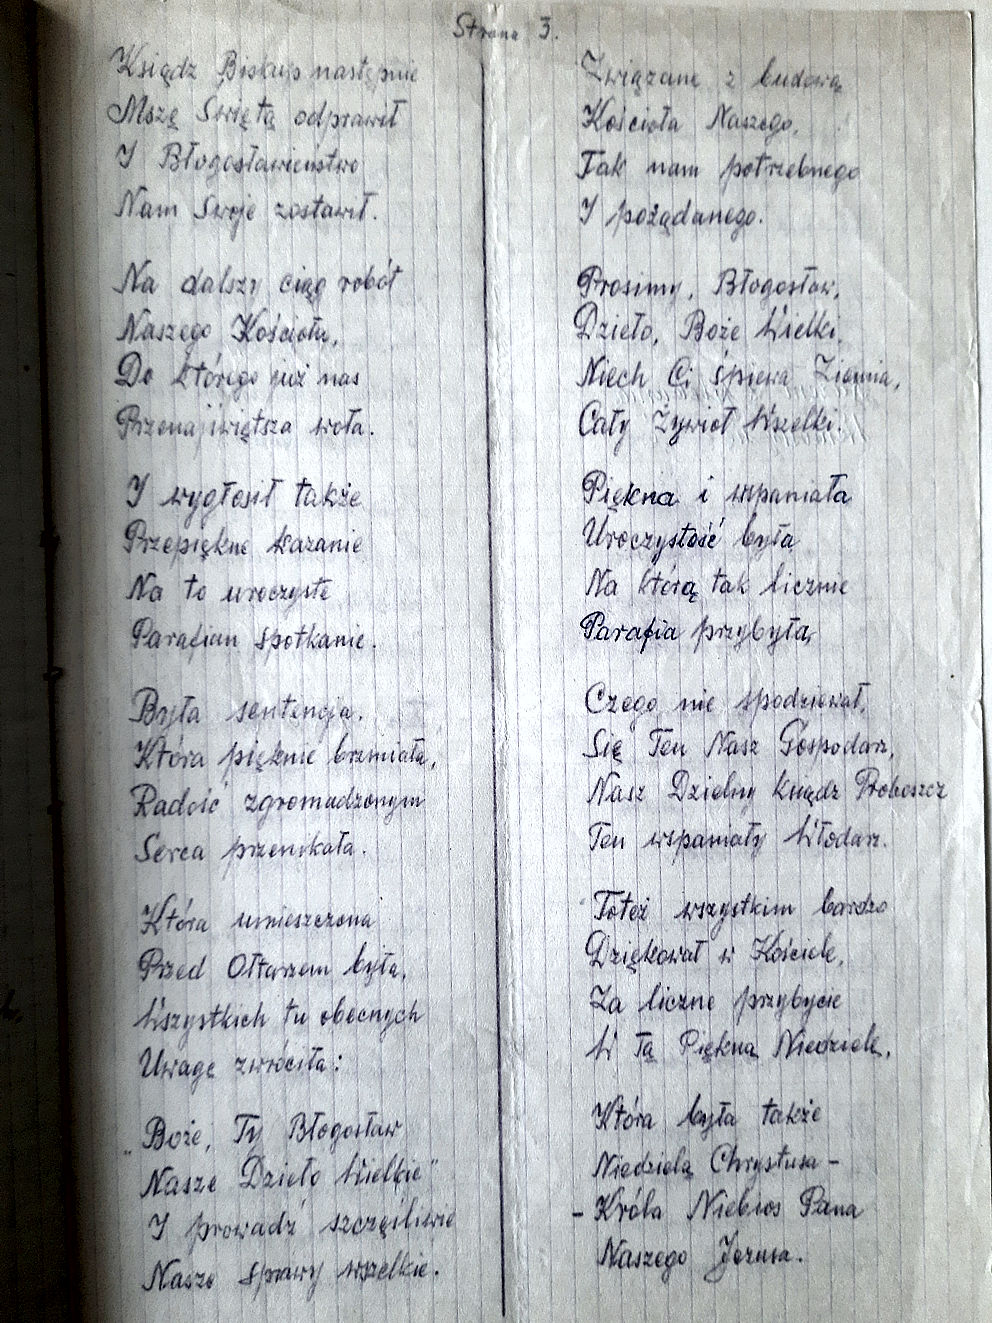 Strona 3.
Ksiądz Biskup następnie
Mszę Świętą odprawił
I Błogosławieństwo
Nam Swoje zostawił.
Na dalszy ciąg robót
Naszego Kościoła,
Do którego już nas
Przenajświętsza woła.
I wygłosił także
Przepiękne kazanie
Na to uroczyste
Parafian spotkanie.
Była sentencja,
Która pięknie brzmiała,
Radość zgromadzonym
Serca przenikała.
Która umieszczona
Przed Ołtarzem była,
Wszystkich tu obecnych
Uwagę zwróciła:
„Boże, Ty Błogosław
Nasze Dzieło Wielkie"
I prowadź szczęśliwie
Nasze sprawy wszelkie.
Związane z budową
Kościoła Naszego,
Tak nam potrzebnego
I pożądanego.
Prosimy, Błogosław,
Dzieło, Boże Wielki,
Niech Ci śpiewa Ziemia,
Cały Żywioł Wszelki.
Piękna i wspaniała
Uroczystość była
Na którą tak licznie
Parafia przybyła,
Czego nie spodziewał,
Się Ten Nasz Gospodarz,
Nasz Dzielny Ksiądz Proboszcz
Ten wspaniały Włodarz.
Toteż wszystkim bardzo
Dziękował w Kościele,
Za liczne przybycie
W Tą Piękną Niedzielę,
Która była także
Niedzielą Chrystusa -
- Króla Niebios Pana
Naszego Jezusa.